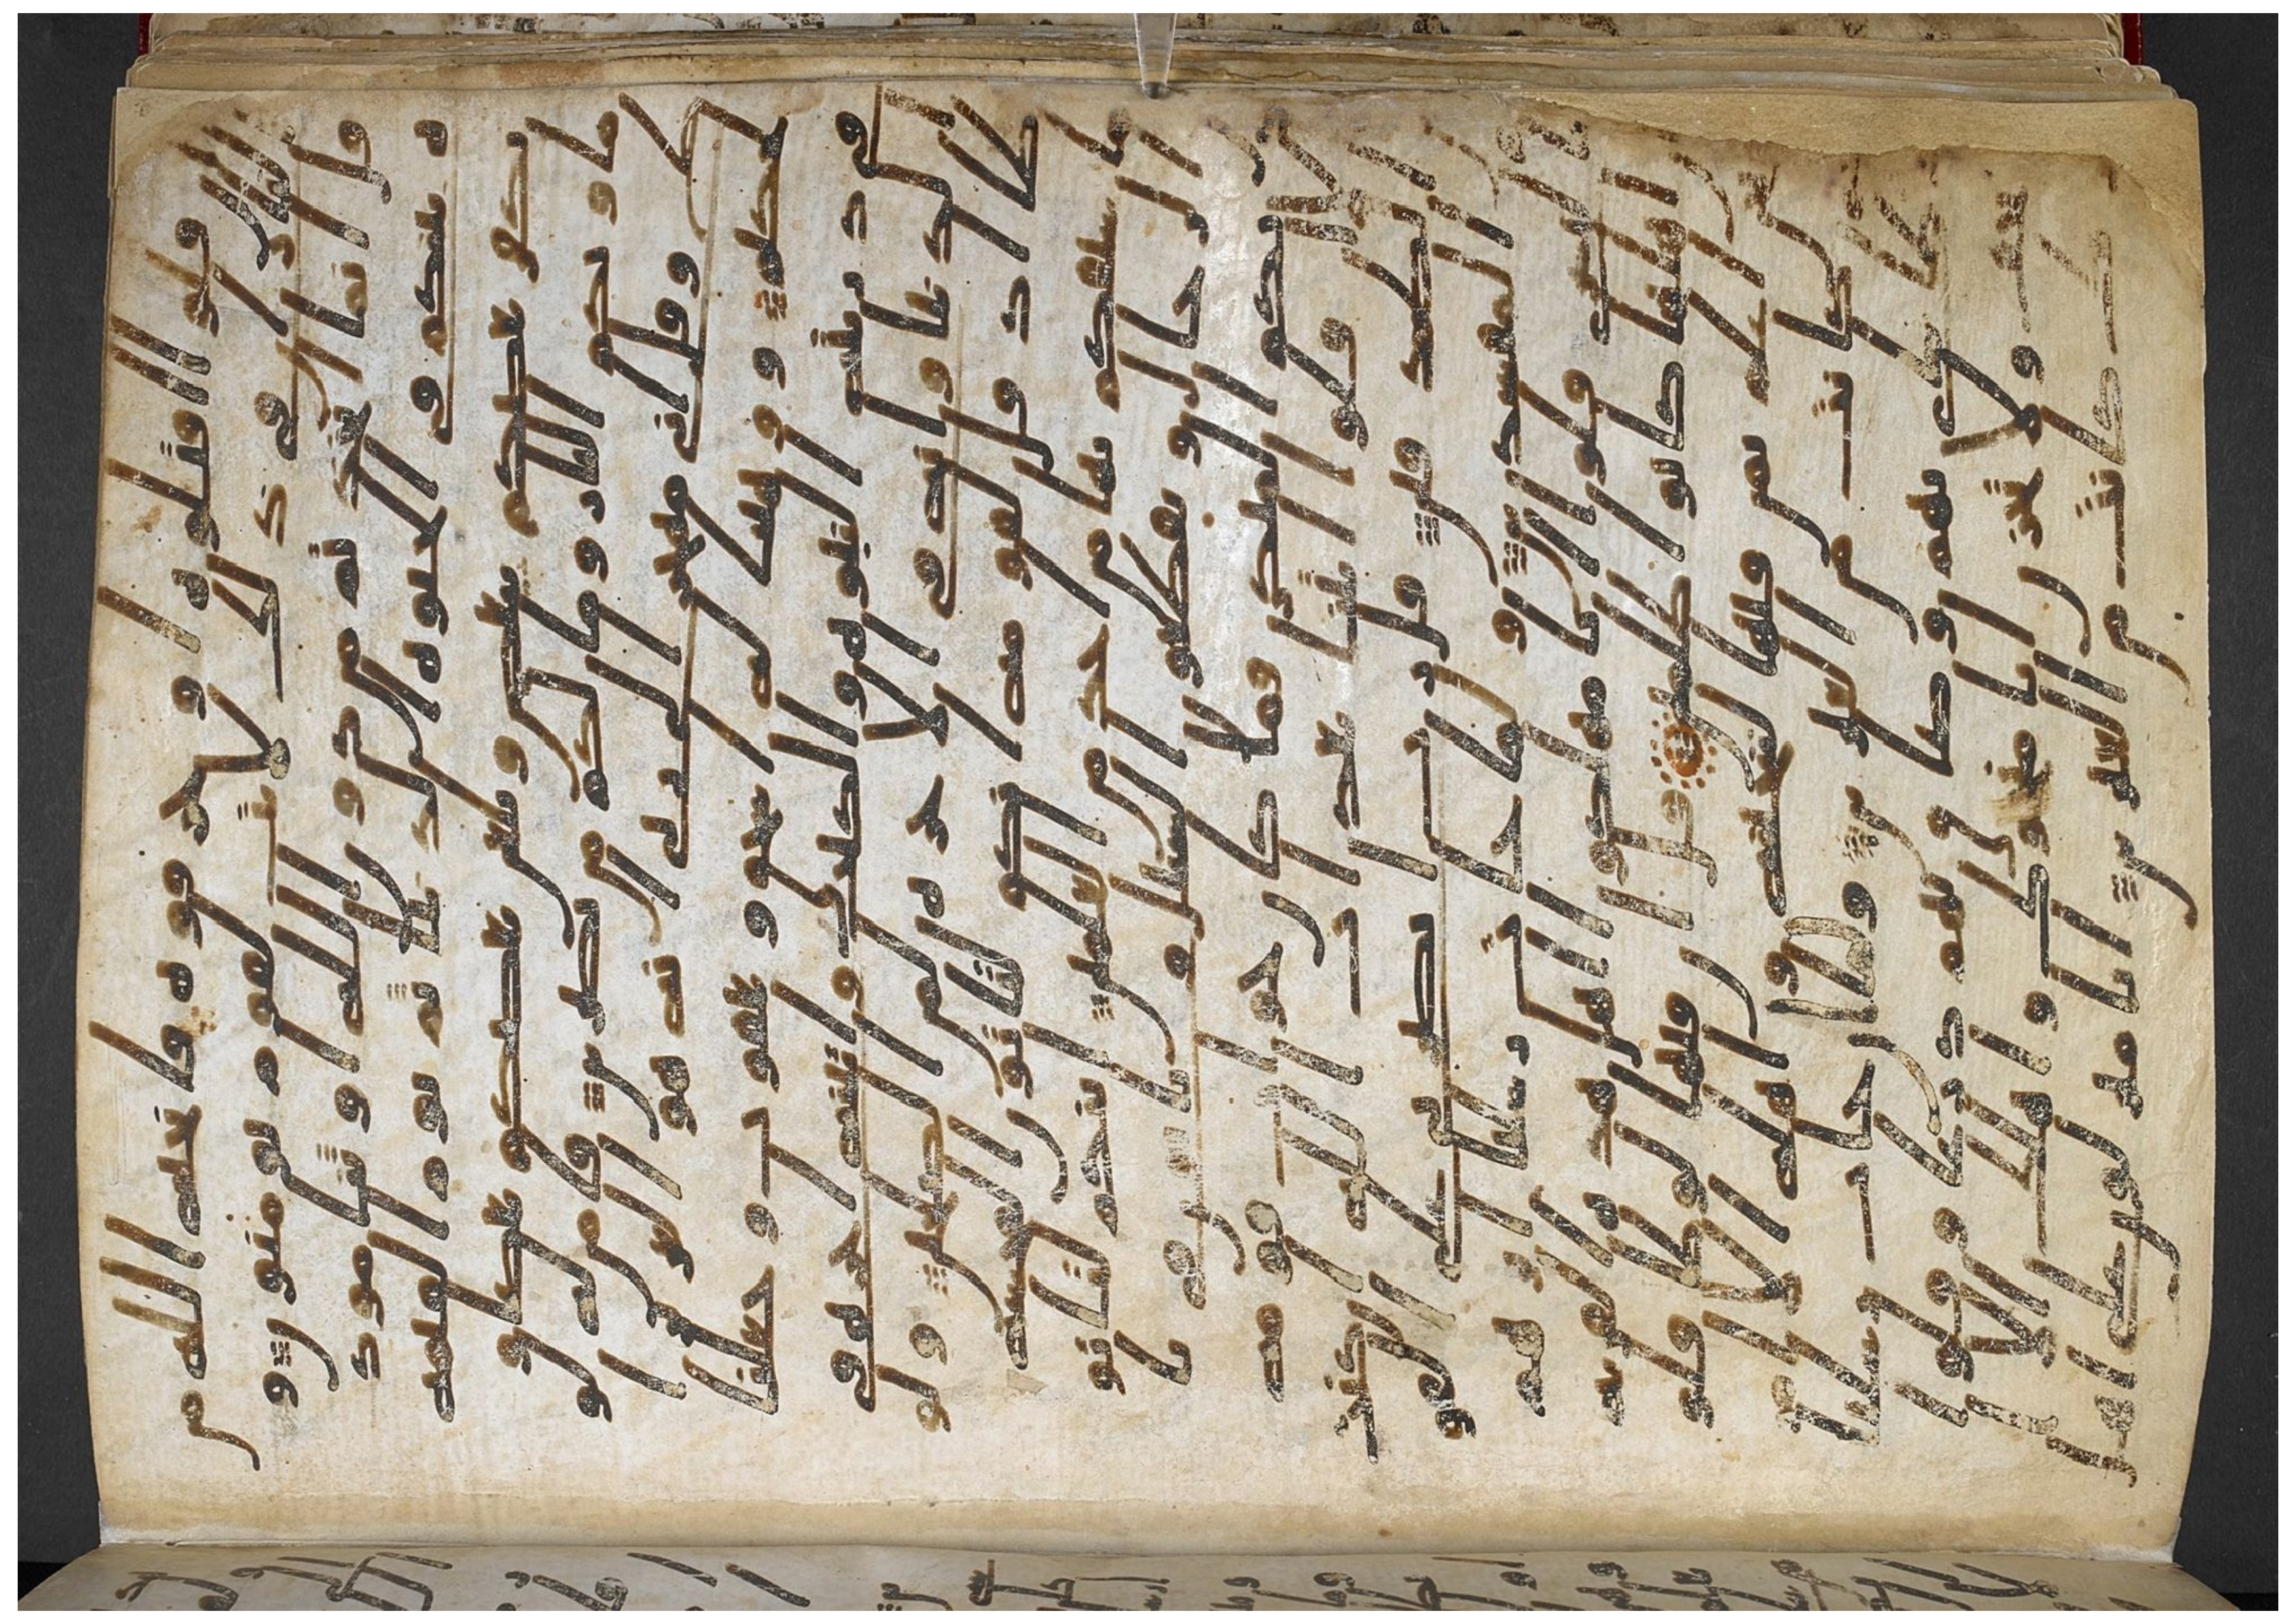 قلوا اقتلوه او حرقوه فانجىه الله م
ن النار ان في ذلك لايت لقوم يومنون و
قال انما اتخذتم من دون الله اوثنا مود
ه بينكم في الحيوه الدنيا ثم يوم القيمه
يكفر بعضكم ببعض ويلعن بعضكم بعضا و
ماويكم النار وما لكم من نصرين فامن له لو
ط وقال اني مهاجر الى ربي انه هو العزيز ا
لحكيم ووهبنا له اسحق ويعقوب وجعلنا
في ذريته النبوه والكتب واتينه اجره في
الدنيا وانه في الاخره لمن الصلحين ولو
طا اذ قال لقومه انكم لتاتون الفحشه
ما سبقكم بها من احد من العلمين ائنكم لتاتو
ن الرجال وتقطعون السبيل وتاتون في نا
ديكم المنكر فما كان جواب قومه
الا ان قلوا ائتنا بعذاب الله ان كنت من
الصدقين قل رب انصرني على القو
م المفسدين ولما جات رسلنا ابرهيم
بالبشرى قلوا انا مهلكوا اهل هذه القريه
ان اهلها كانوا ظلمين قال ان فيها لوطا قلو
ا نحن اعلم بمن فيها لننجينه واهله الا ا
مراته كانت من الغبرين ولما ان جات رسلنا
لوطا سي بهم وضاق بهم ذرعا وقلوا
لا تخف ولا تحزن انا منجوك واهلك الا ا
مراتك كانت من الغبرين انا منزلون على اهل